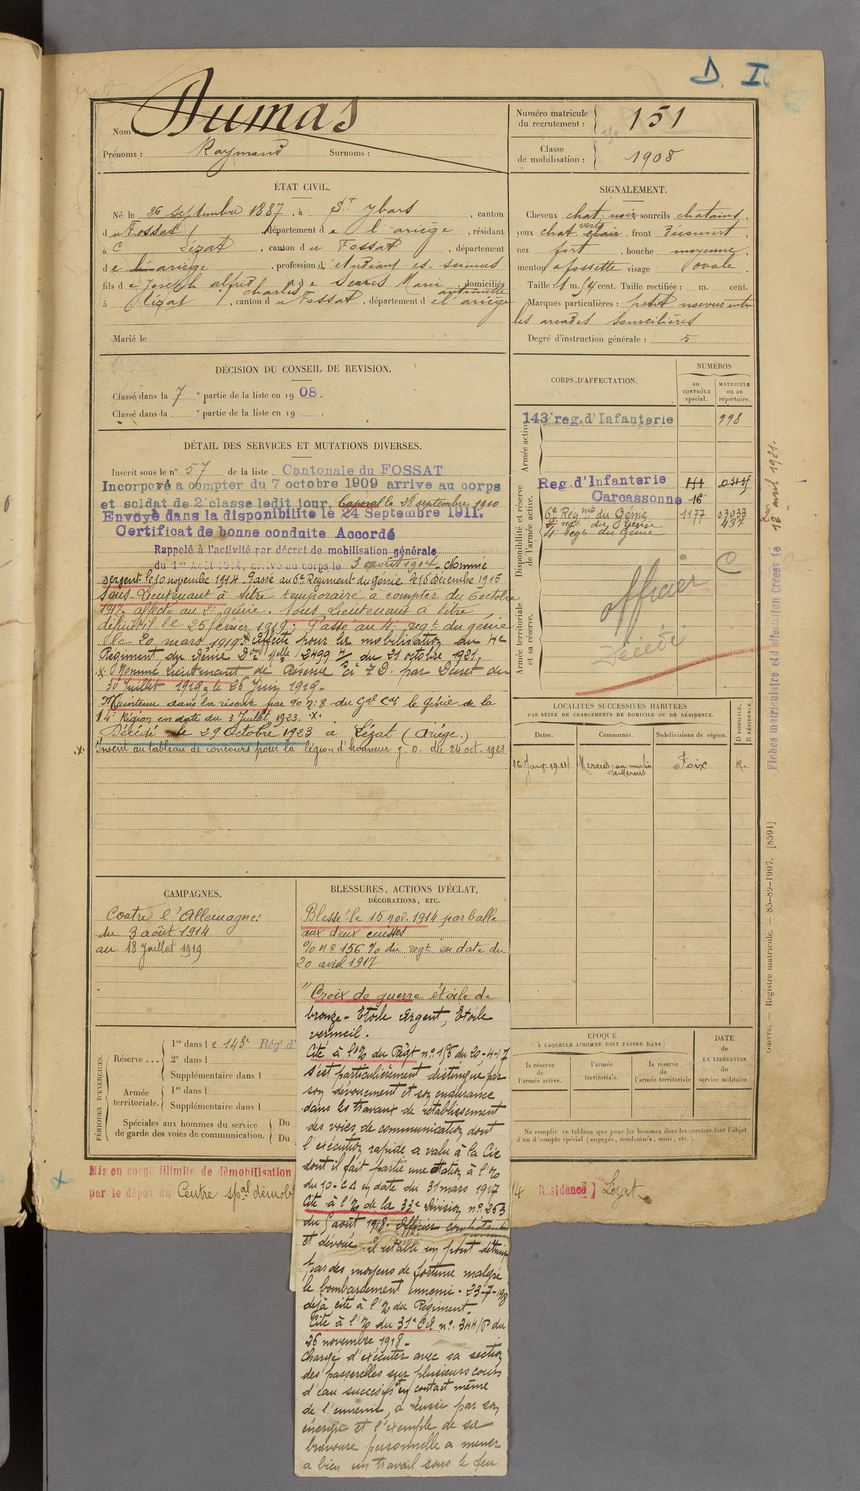 D. I.
Nom Dumas
Prénoms : Raymond Surnoms :
Numéro matricule du recrutement : 151
Classe de mobilisation : 1908
ÉTAT CIVIL.
Né le 26 septembre 1887, à St Ybars, canton
du Fossat, département de l'ariège, résidant
à Lézat, canton du Fossat, département
de l'ariège, profession d'étudiant es sciences
fils de Joseph alfred charles et de Seares Marie antoinette domiciliés
à Lézat, canton du Fossat, département de l'ariège
Marié le
SIGNALEMENT.
Cheveux chat. noir sourcils chatains.
yeux chat. verts clairs, front découvert.
nez fort, bouche moyenne.
menton a fossette visage ovale.
Taille : 1 m. 54 cent. Taille rectifiée : m. cent.
Marques particulières : petit entre
les arcades sourcilières
Degré d'instruction générale : 5
DÉCISION DU CONSEIL DE REVISION.
Classé dans la 7e partie de la liste en 1908.
Classé dans la e partie de la liste en 19
DÉTAIL DES SERVICES ET MUTATIONS DIVERSES.
Inscrit sous le n° 57 de la liste Cantonale du FOSSAT
Incorporé a compter du 7 octobre 1909 arrive au corps
et soldat de 2e classe ledit jour. Caporal le 28 septembre 1910
Envoyé dans la disponibilité le 24 Septembre 1911.
Certificat de bonne conduite Accordé
Rappelé à l'activité par décret de mobilisation générale
du 1er Août 1914, arrivé au corps le 3 août 1914. Nommé
sergent le 10 novembre 1914. Passé au 6e Régiment du Génie le 16 décembre 1915
Sous-Lieutenant à titre temporaire à compter du 6 octobre
1917 affecté au 2e génie. Sous Lieutenant à titre
définitif le 25 février 1919; Passé au 4e regt du génie
le 20 mars 1919. Affecté pour la mobilisation au 4e
Régiment du Génie Don Mlle 2499 du 21 octobre 1921.
x Nommé Lieutenant de Réserve à T.D. par Décret du
30 Juillet 1919, le 26 Juin 1919.
Maintenu dans la réserve par no n: 8 du Gal Ct le Génie de la
14e Région en date du 3 Juillet 1923. .x.
Décédé le 29 Octobre 1923 à Lézat (Ariège.)
.x. Inscrit au tableau de concours pour la légion d'honneur J. O. du 24 oct. 1923
CORPS D'AFFECTATION.
NUMÉROS
AU CONTRÔLE SPÉCIAL.
MATRICULE OU AU RÉPERTOIRE.
Armée active.
143 reg. d'Infanterie 998
Disponibilité et réserve de l'armée active.
Reg. d'Infanterie
Carcassonne 16
6e Régmt du Génie 1177 03033
2e regt du Génie 437
4e Regt du Génie
Armée territoriale et sa réserve.
officier C
Décédé
LOCALITÉS SUCCESSIVES HABITÉES
PAR SUITE DE CHANGEMENTS DE DOMICILE OU DE RÉSIDENCE.
Dates. Communes. Subdivisions de région. D DOMICILE. R RÉSIDENCE.
16 Janv. 1914 Mercus Foix R.
Fiches matriculaire et d'affectation Créées le 12 avril 1921.
Guerre. — Registre matricule. — 85-89-1907. [8591]
CAMPAGNES.
Contre l'Allemagne:
du 3 août 1914
au 18 Juillet 1919
BLESSURES, ACTIONS D'ÉCLAT,
DÉCORATIONS, ETC.
Blessé le 15 nov. 1914 par balle
aux deux cuisses
O/o n° 156 % du regt en date du
20 avril 1917
" Croix de guerre étoile de
bronze - Etoile Argent, Etoile
vermeil.
Cité à l'O/ du Régt n° 156 du 20-4-17
s'est particulièrement distingué par
son dévouement et son endurance
dans les travaux de rétablissement
des voies de communication dont
l'exécution rapide a valu à la Cie
dont il fait partie une citation à l'O/
du 10e CA en date du 31 mars 1917
Cité à l'O/ de la 33e Division n° 263
du 5 août 1918. Officier
et dévoué. il rétablit un pont détruit
par des moyens de fortune malgré
le bombardement ennemi. 23-7-18
déjà cité à l'O/ du Régiment.
Cité à l'O/ du 31e CA n° 344/P du
26 novembre 1918.
Chargé d'exécuter avec sa section
des passerelles sur plusieurs cours
d'eau successifs en contact même
de l'ennemi, a réussi par son
énergie et l'exemple de sa
bravoure personnelle a mener
a bien un travail sous le feu
PÉRIODES D'EXERCICES.
Réserve.... 1re dans le 143e Rég' d'
2e dans l
Supplémentaire dans l
Armée territoriale. 1re dans l
Supplémentaire dans l
Spéciales aux hommes du service de garde des voies de communication. Du
Du
ÉPOQUE
À LAQUELLE L'HOMME DOIT PASSER DANS :
la réserve de l'armée active.
l'armée territoriale.
la réserve de l'armée territoriale
DATE de LA LIBÉRATION du service militaire.
Ne remplir ce tableau que pour les hommes dont les services font l'objet
d'un compte spécial (engagés, condamnés, omis, etc.)
Mis en congé illimité de démobilisation
par le dépôt du Centre spal démob
Résidence] Lézat